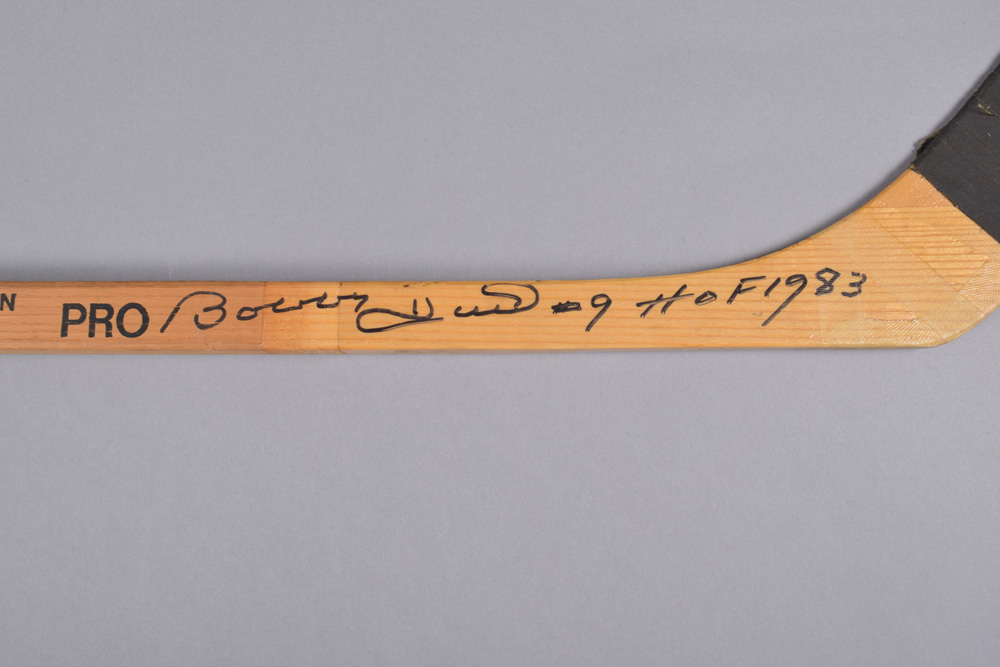 N PRO Bobby Hull #9 HOF 1983